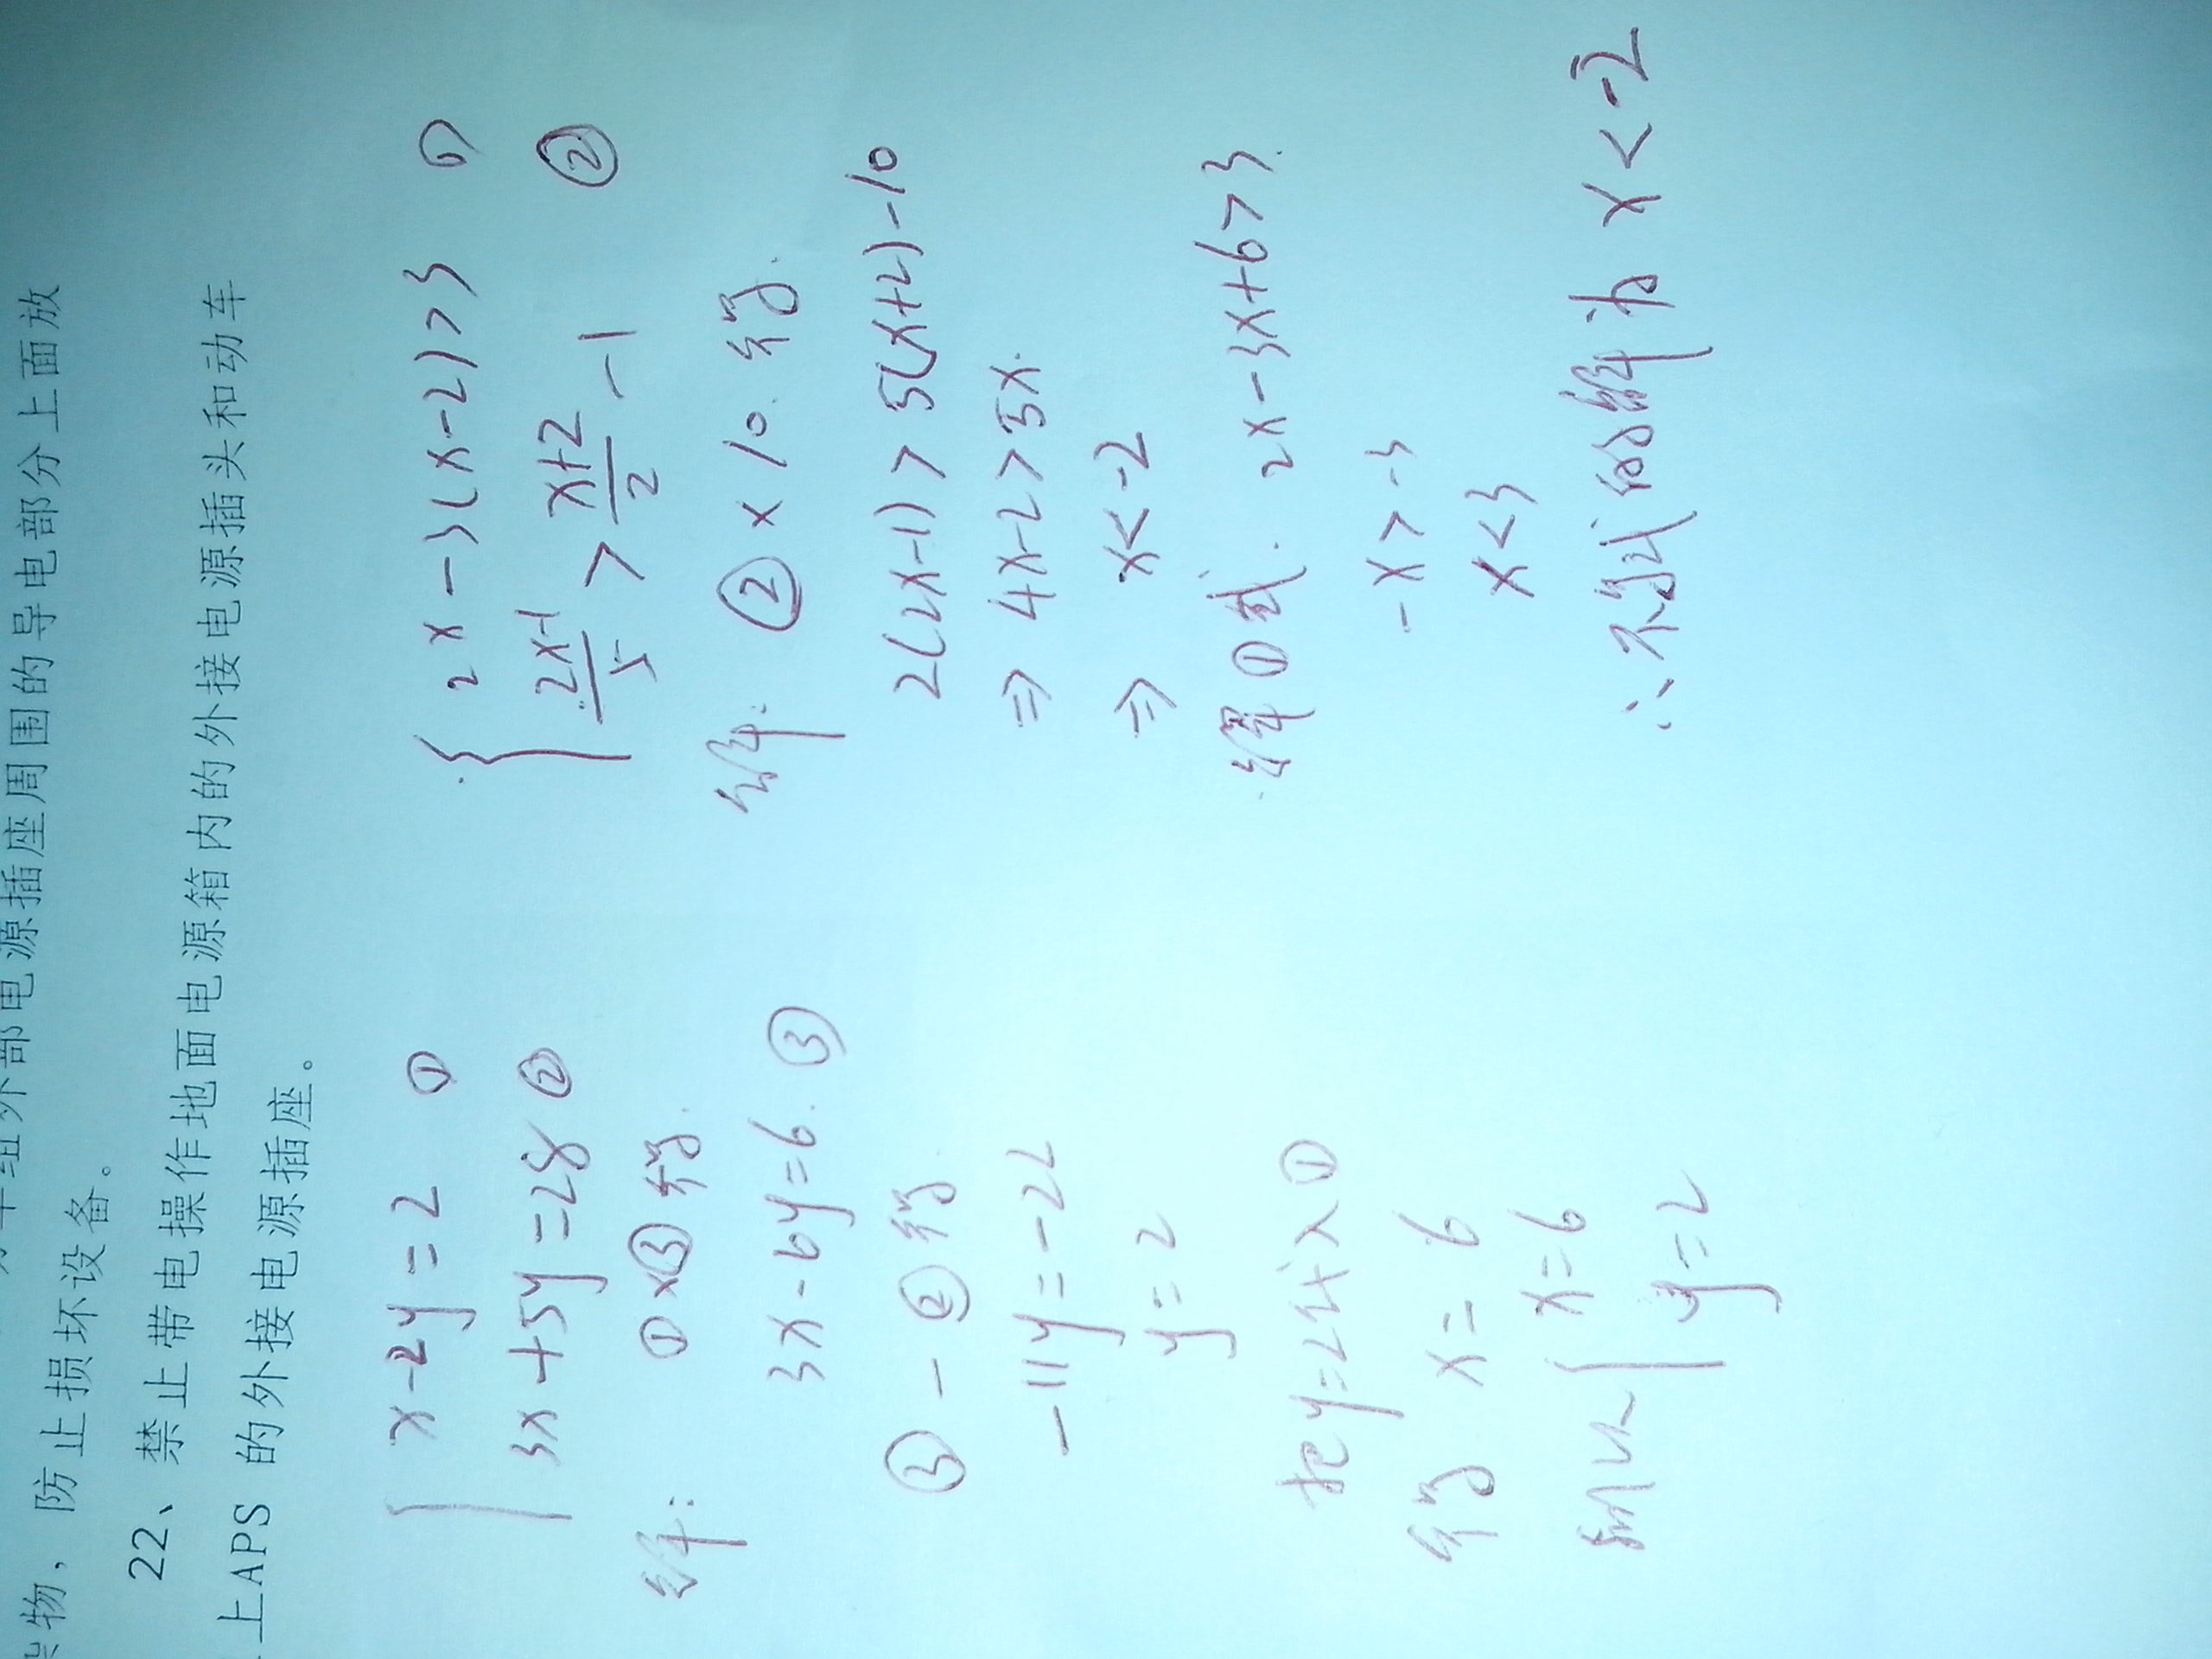 货物、防止损坏设备。
22、禁止带电操作地面电源箱内的外接电源插头和动车
上APS 的外接电源插座。
组外部电源插座周围的导电部分上面放
{ x-2y=2 ①
3x+5y=28 ②
解: ①×③得.
3x-6y=6. ③
③-②得.
-11y=-22
y=2
把y=2代入①
得 x=6
所以{ x=6
y=2
{ 2x-3(x-2)>3 ①
(2x-1)/5 > (x+2)/2 -1 ②
解: ②×10.得.
2(2x-1)>5(x+2)-10
⇒ 4x-2>5x.
⇒ x<-2
解①式. 2x-3x+6>3.
-x>-3
x<3
∴不等式的解为 x<-2